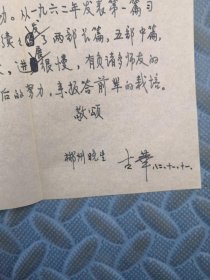 功。从一九六二年发表第一篇习
续 发 了两部长篇，五部中篇，
，进展很慢，有负诸多师友的
后的努力，来报答前辈的栽培。
敬颂
郴州晚生 古华 八二、十一、十一、